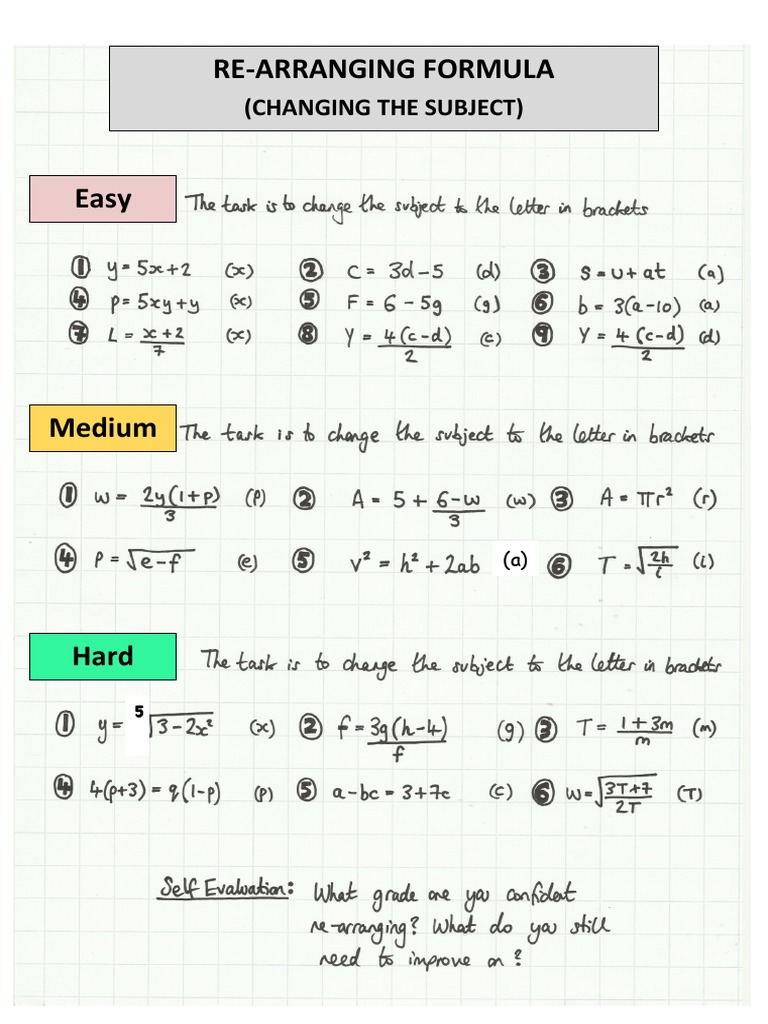 RE-ARRANGING FORMULA
(CHANGING THE SUBJECT)
Easy The task is to change the subject to the letter in brackets
① y = 5x + 2 (x) ② C = 3d - 5 (d) ③ s = u + at (a)
④ p = 5xy + y (x) ⑤ F = 6 - 5g (g) ⑥ b = 3(a - 10) (a)
⑦ L = (x + 2)/7 (x) ⑧ Y = 4(c - d)/2 (c) ⑨ Y = 4(c - d)/2 (d)
Medium The task is to change the subject to the letter in brackets
① w = 2y(1 + p)/3 (p) ② A = 5 + (6 - w)/3 (w) ③ A = πr² (r)
④ P = √(e - f) (e) ⑤ v² = h² + 2ab (a) ⑥ T = √(2h/i) (i)
Hard The task is to change the subject to the letter in brackets
① y = ⁵√(3 - 2x²) (x) ② f = 3g(h - 4)/f (g) ③ T = (1 + 3m)/m (m)
④ 4(p+3) = q(1-p) (p) ⑤ a - bc = 3 + 7c (c) ⑥ W = √((3T + 7)/2T) (T)
Self Evaluation: What grade are you confident
re-arranging? What do you still
need to improve on?